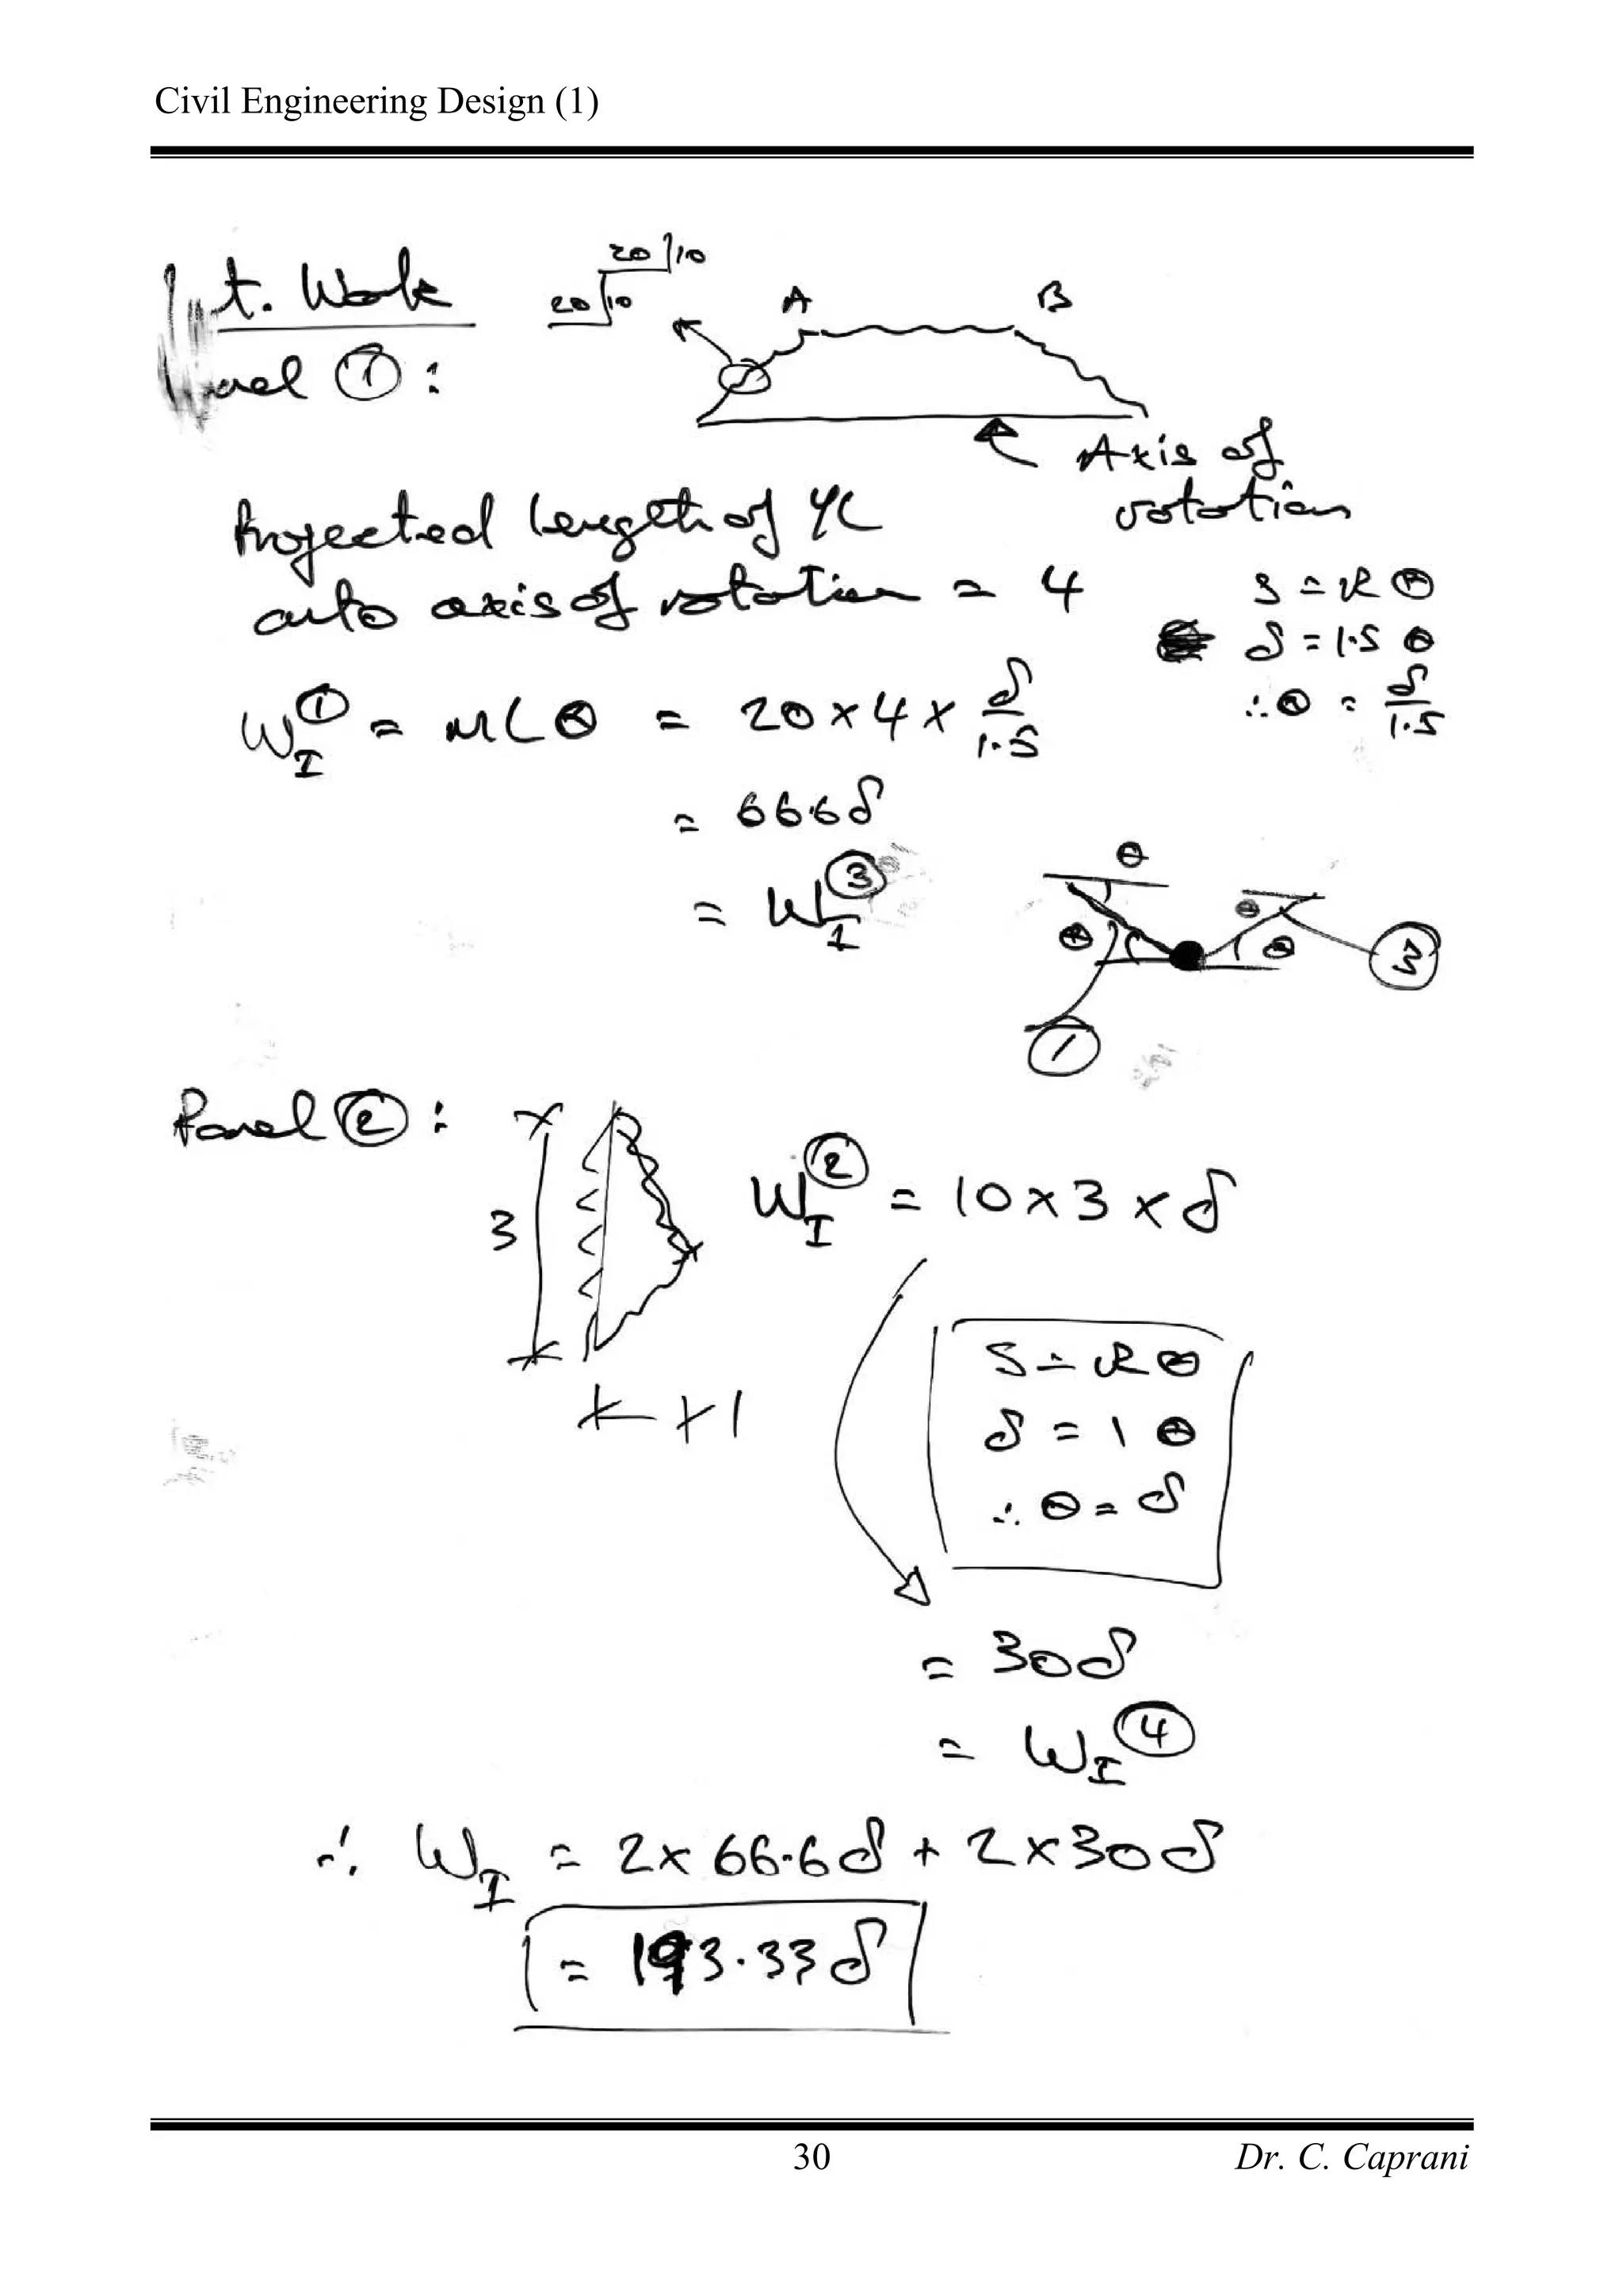 Civil Engineering Design (1)
Int. Work
20 10
20 10
A B
Panel ①:
Axis of
rotation
Projected length of YL
onto axis of rotation = 4
S = Rθ
δ = 1.5 θ
∴ θ = δ/1.5
W_I^① = MLθ = 20 × 4 × δ/1.5
= 66.6δ
= W_I^③
θ
θ
θ
θ
③
①
Panel ②:
3
1
W_I^② = 10 × 3 × δ
S = Rθ
δ = 1 θ
∴ θ = δ
= 30δ
= W_I^④
∴ W_I = 2 × 66.6δ + 2 × 30δ
= 193.33δ
30
Dr. C. Caprani